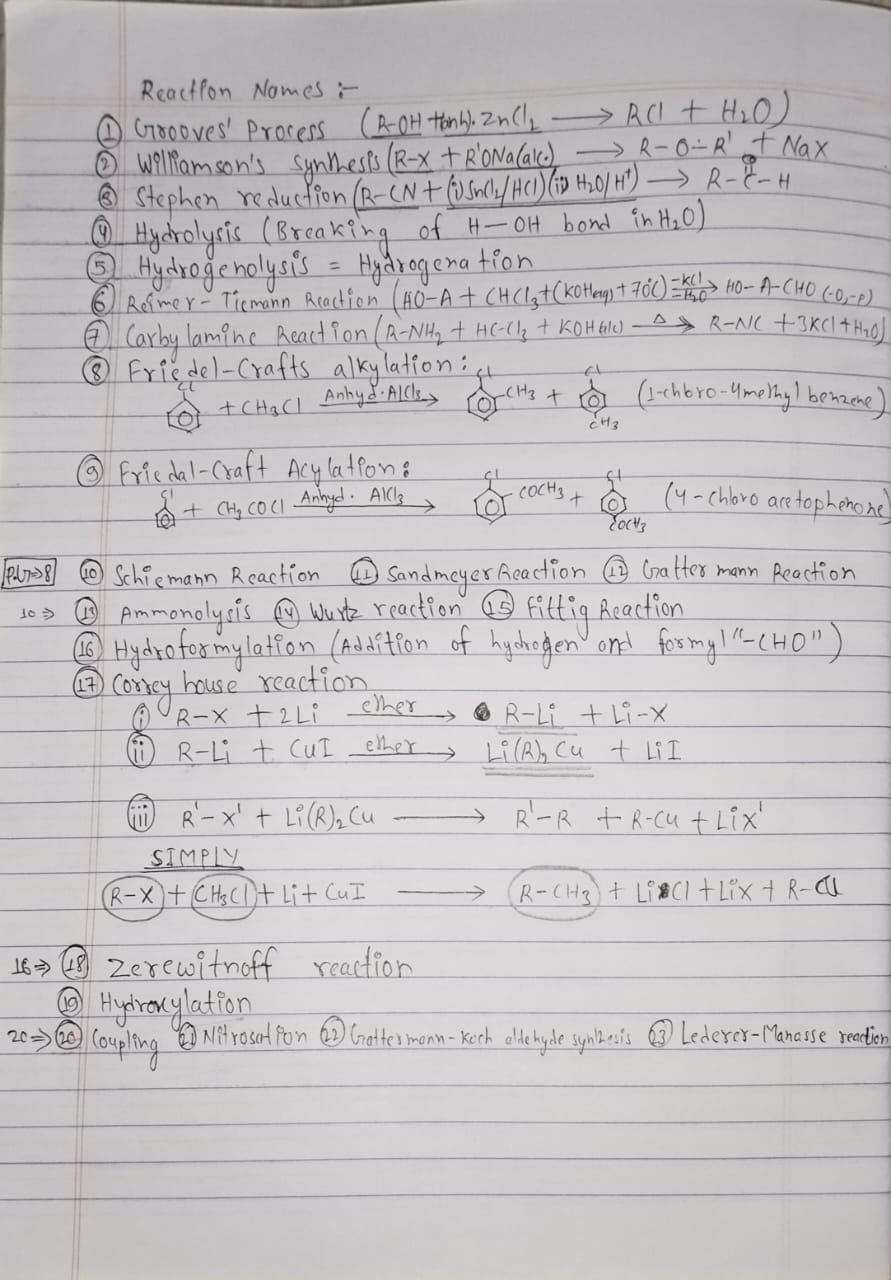 Reaction Names :-
① Grooves' Process (R-OH + anh). ZnCl₂ ⟶ RCl + H₂O)
② Williamson's synthesis (R-X + R'ONa(alc.) ⟶ R-O-R' + NaX
③ Stephen reduction (R-CN + (i) SnCl₂/HCl) (ii) H₂O/H⁺) ⟶ R-C-H
O
④ Hydrolysis (Breaking of H-OH bond in H₂O)
⑤ Hydrogenolysis = Hydrogenation
⑥ Reimer-Tiemann Reaction (HO-A + CHCl₃ + (KOH(aq) + 70°C) -KCl -H₂O → HO-A-CHO (-O,-P)
⑦ Carbylamine Reaction (R-NH₂ + HC-Cl₃ + KOH(alc) —Δ→ R-NC + 3KCl + H₂O)
⑧ Friedel-Crafts alkylation :
Cl + CH₃Cl Anhyd. AlCl₃ ⟶ Cl CH₃ + Cl CH₃ (1-chloro-4methyl benzene)
⑨ Friedal-Craft Acylation :
Cl + CH₃COCl Anhyd. AlCl₃ ⟶ Cl COCH₃ + Cl COCH₃ (4-chloro acetophenone)
⑩ Schiemann Reaction ⑪ Sandmeyer Reaction ⑫ Gattermann Reaction
10 ⇒ ⑬ Ammonolysis ⑭ Wurtz reaction ⑮ Fittig Reaction
⑯ Hydroformylation (Addition of hydrogen and formyl "-CHO")
⑰ Correy house reaction
(i) R-X + 2Li ether ⟶ R-Li + Li-X
(ii) R-Li + CuI ether ⟶ Li(R)₂Cu + LiI
(iii) R'-X' + Li(R)₂Cu ⟶ R'-R + R-Cu + LiX'
SIMPLY
R-X + CH₃Cl + Li + CuI ⟶ R-CH₃ + LiCl + LiX + R-Cu
18 ⇒ ⑱ Zerewitnoff reaction
⑲ Hydroxylation
20 ⇒ ⑳ Coupling ㉑ Nitrosation ㉒ Gattermann-Koch aldehyde synthesis ㉓ Lederer-Manasse reaction